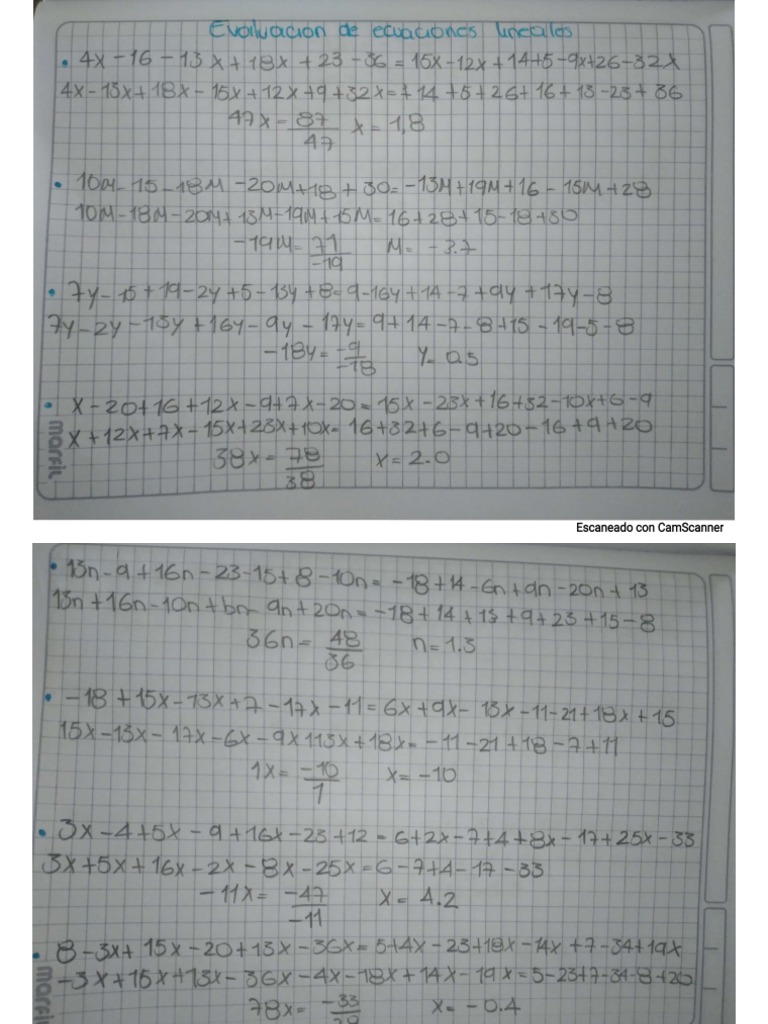 Evaluación de ecuaciones lineales
• 4x - 16 - 13x + 18x + 23 - 36 = 15x - 12x + 14 + 5 - 9x + 26 - 32x
4x - 13x + 18x - 15x + 12x + 9 + 32x = + 14 + 5 + 26 + 16 + 13 - 23 + 36
47x = 87/47 x = 1,8
• 10M - 15 - 18M - 20M + 18 + 30 = -13M + 19M + 16 - 15M + 28
10M - 18M - 20M + 13M - 19M + 15M = 16 + 28 + 15 - 18 + 30
-19M = 71/-19 M = -3.7
• 7y - 15 + 19 - 2y + 5 - 13y + 8 = 9 - 16y + 14 - 7 + 9y + 17y - 8
7y - 2y - 13y + 16y - 9y - 17y = 9 + 14 - 7 - 8 + 15 - 19 - 5 - 8
-18y = -9/-18 y = 0.5
• x - 20 + 16 + 12x - 9 + 7x - 20 = 15x - 23x + 16 + 32 - 10x + 6 - 9
x + 12x + 7x - 15x + 23x + 10x = 16 + 32 + 6 - 9 + 20 - 16 + 9 + 20
38x = 78/38 x = 2.0
marfil
Escaneado con CamScanner
• 13n - 9 + 16n - 23 - 15 + 8 - 10n = -18 + 14 - 6n + 9n - 20n + 13
13n + 16n - 10n + 6n - 9n + 20n = -18 + 14 + 13 + 9 + 23 + 15 - 8
36n = 48/36 n = 1.3
• -18 + 15x - 13x + 7 - 17x - 11 = 6x + 9x - 13x - 11 - 21 + 18x + 15
15x - 13x - 17x - 6x - 9x 113x + 18x = -11 - 21 + 18 - 7 + 11
1x = -10/1 x = -10
• 3x - 4 + 5x - 9 + 16x - 23 + 12 = 6 + 2x - 7 + 4 + 8x - 17 + 25x - 33
3x + 5x + 16x - 2x - 8x - 25x = 6 - 7 + 4 - 17 - 33
-11x = -47/-11 x = 4.2
• 8 - 3x + 15x - 20 + 13x - 36x = 5 + 4x - 23 + 18x - 14x + 7 - 34 + 19x
-3x + 15x + 13x - 36x - 4x - 18x + 14x - 19x = 5 - 23 + 7 - 34 - 8 + 20
78x = -33 x = -0.4
marfil